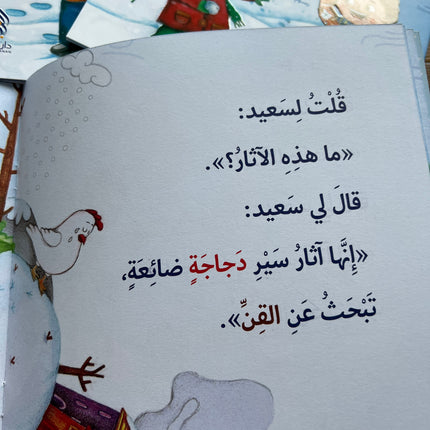 قُلْتُ لِسَعيد:
«ما هذِهِ الآثارُ؟».
قالَ لي سَعيد:
«إِنَّها آثارُ سَيْرِ دَجاجَةٍ ضائِعَةٍ،
تَبْحَثُ عَنِ القِنِّ».